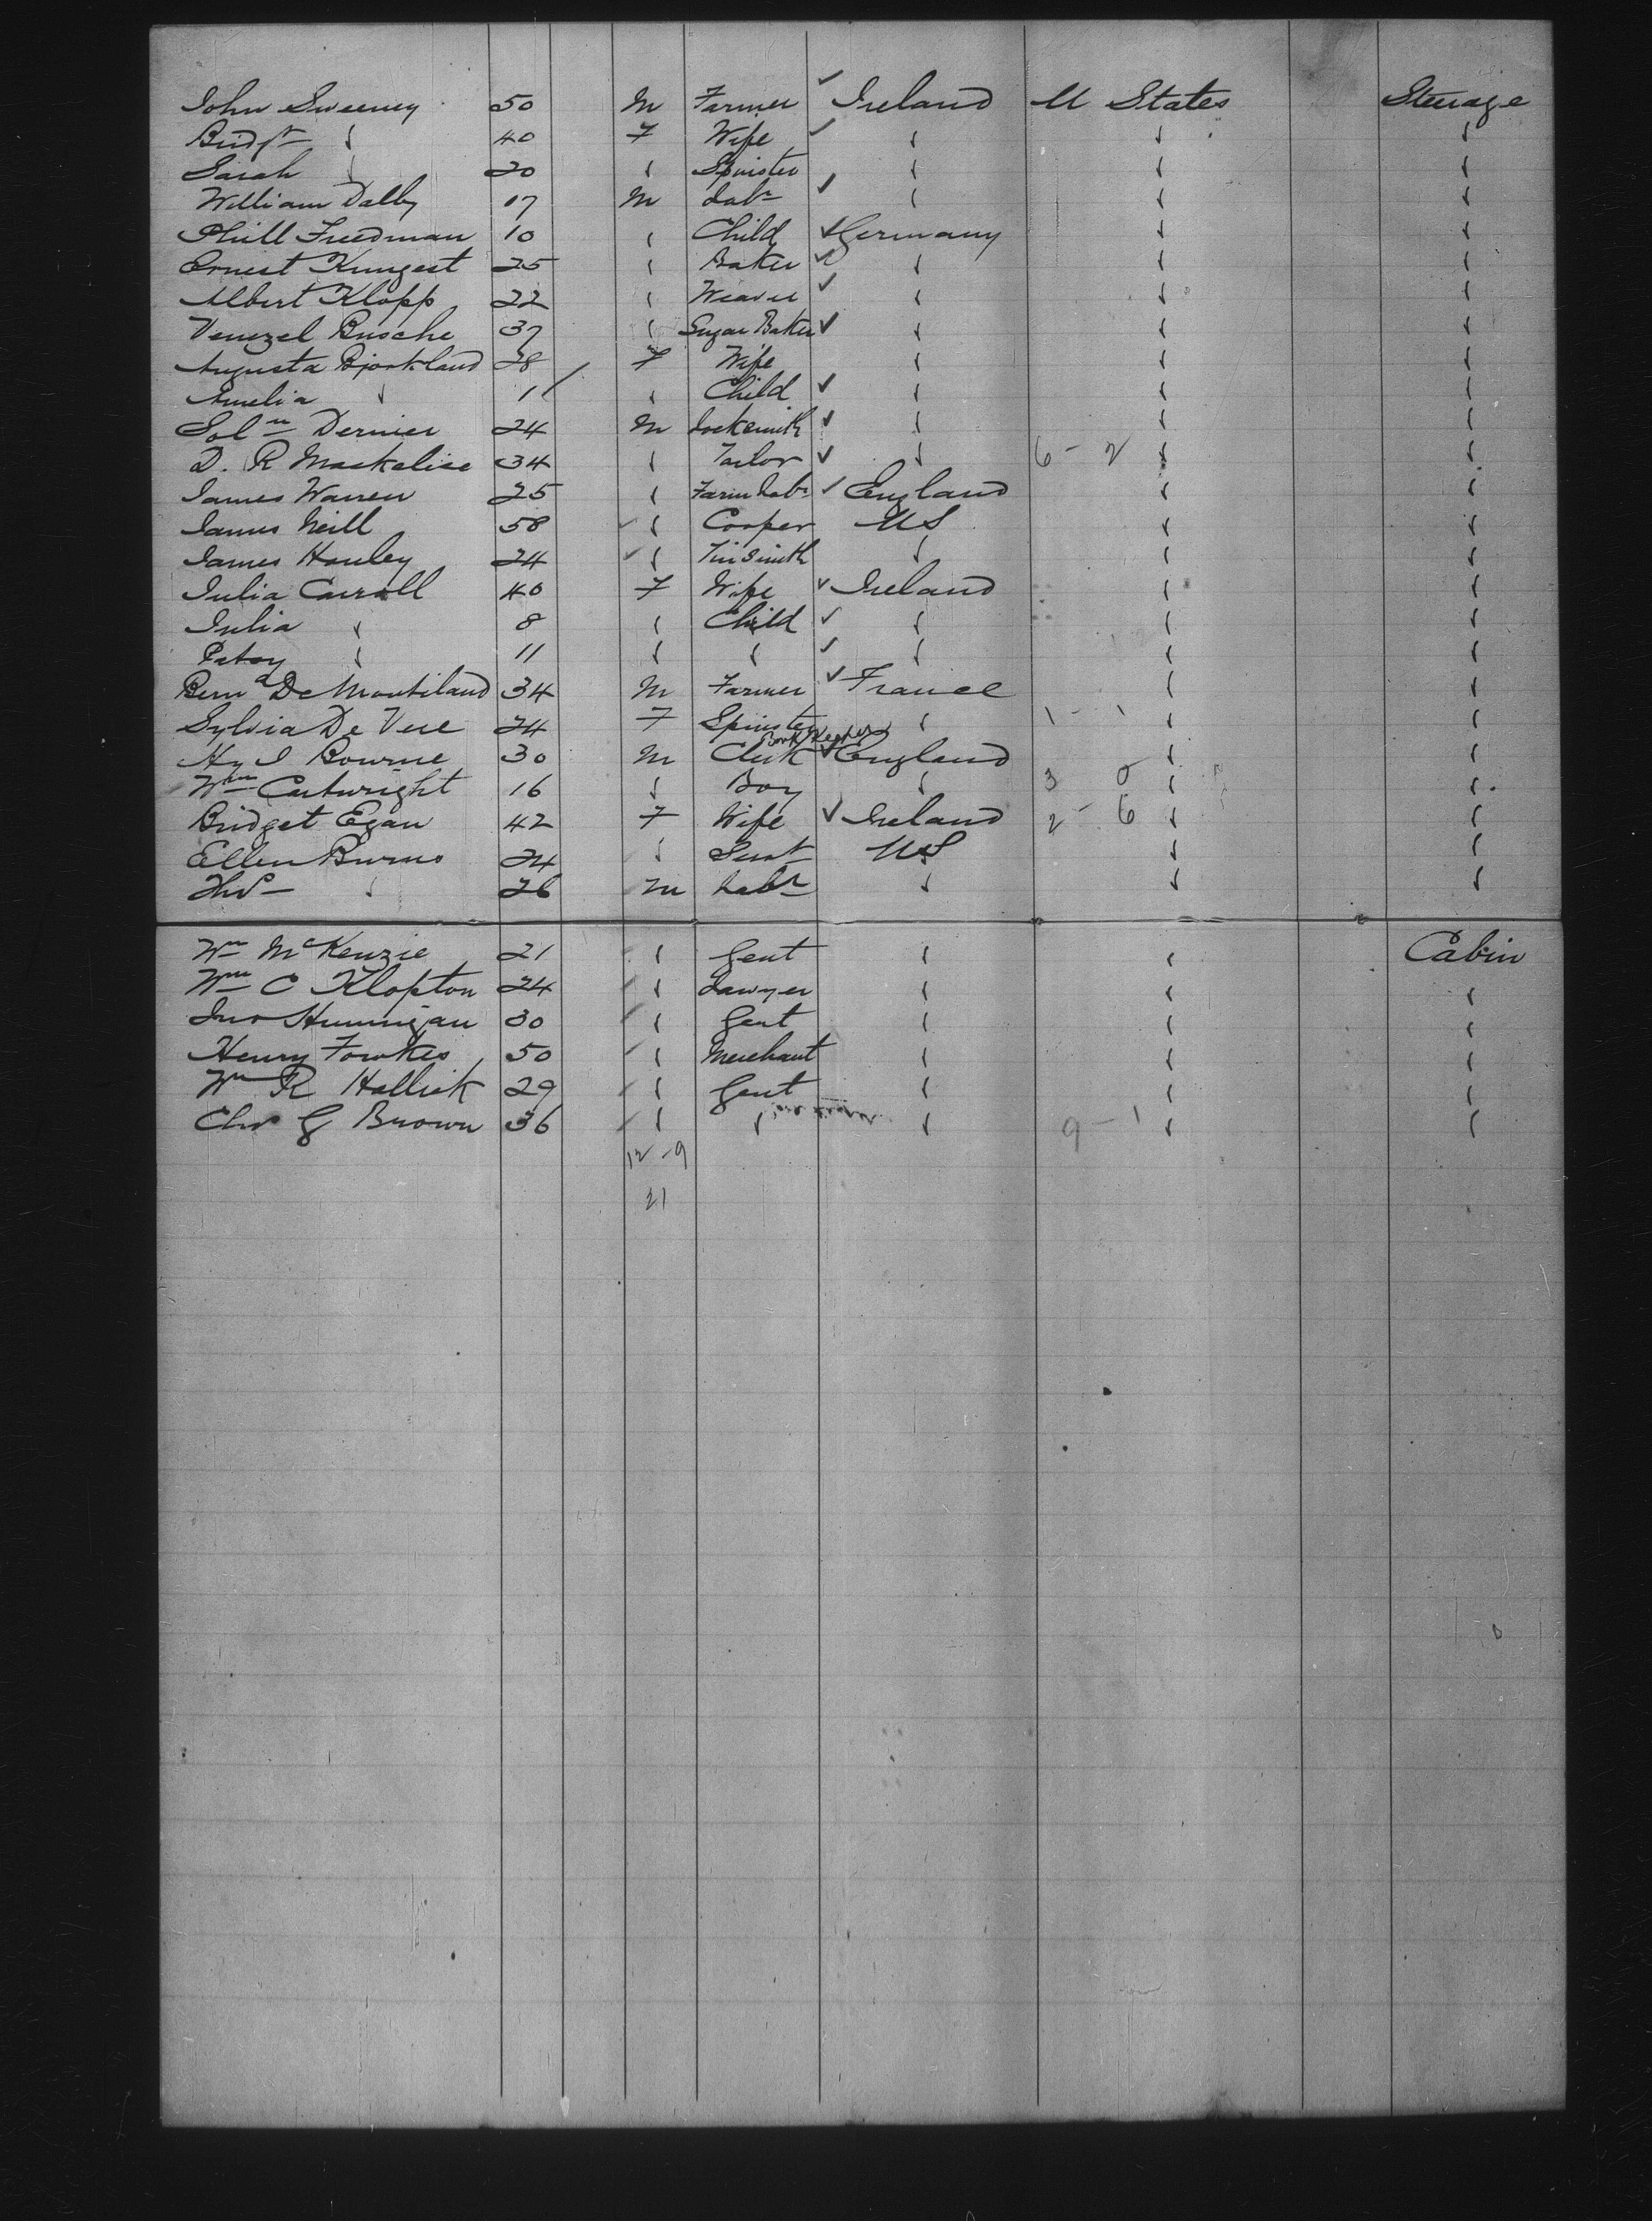 John Sweeney 50 M Farmer ✓ Ireland U States Steerage
Bridgt " 40 F Wife ✓ " " "
Sarah " 20 " Spinster " " "
William Dalby 17 M Labr ✓ " " "
Phill Freedman 10 " Child ✓ Germany " "
Ernest Kungest 25 " Baker ✓ " " "
Albert Klopp 22 " Weaver ✓ " " "
Venezel Busche 37 " Sugar Baker ✓ " " "
Augusta Bjorkland 28 F Wife " " "
Amelia " 1 " Child ✓ " " "
Solmn Dernier 24 M Locksmith ✓ " " "
D. R Maskelise 34 " Tailor ✓ " 6 - 2 " "
James Warren 25 " Farm Labr ✓ England " "
James Neill 58 " Cooper US " "
James Hanley 24 " Tinsmith " " "
Julia Carroll 40 F Wife ✓ Ireland " "
Julia " 8 " Child ✓ " " "
Patsy " 11 " " ✓ " " "
Bernd De Montiland 34 M Farmer ✓ France " "
Sylvia De Vere 24 F Spinster " 1 - 1 " "
Hy J Bourne 30 M Book Keeper Clerk ✓ England " "
Wm Cartwright 16 " Boy " 3 0 " "
Bridget Egan 42 F Wife ✓ Ireland 2 - 6 " "
Ellen Burns 24 " Servt US " "
Thos " 26 M Labr " " "
Wm McKenzie 21 " Gent " " Cabin
Wm C Klopton 24 " Lawyer " " "
Jno Hunnigan 30 " Gent " " "
Henry Fowkes 50 " Merchant " " "
Wm R Hallick 29 " Gent " " "
Chs G Brown 36 " " " 9 - 1 " "
12 - 9
21